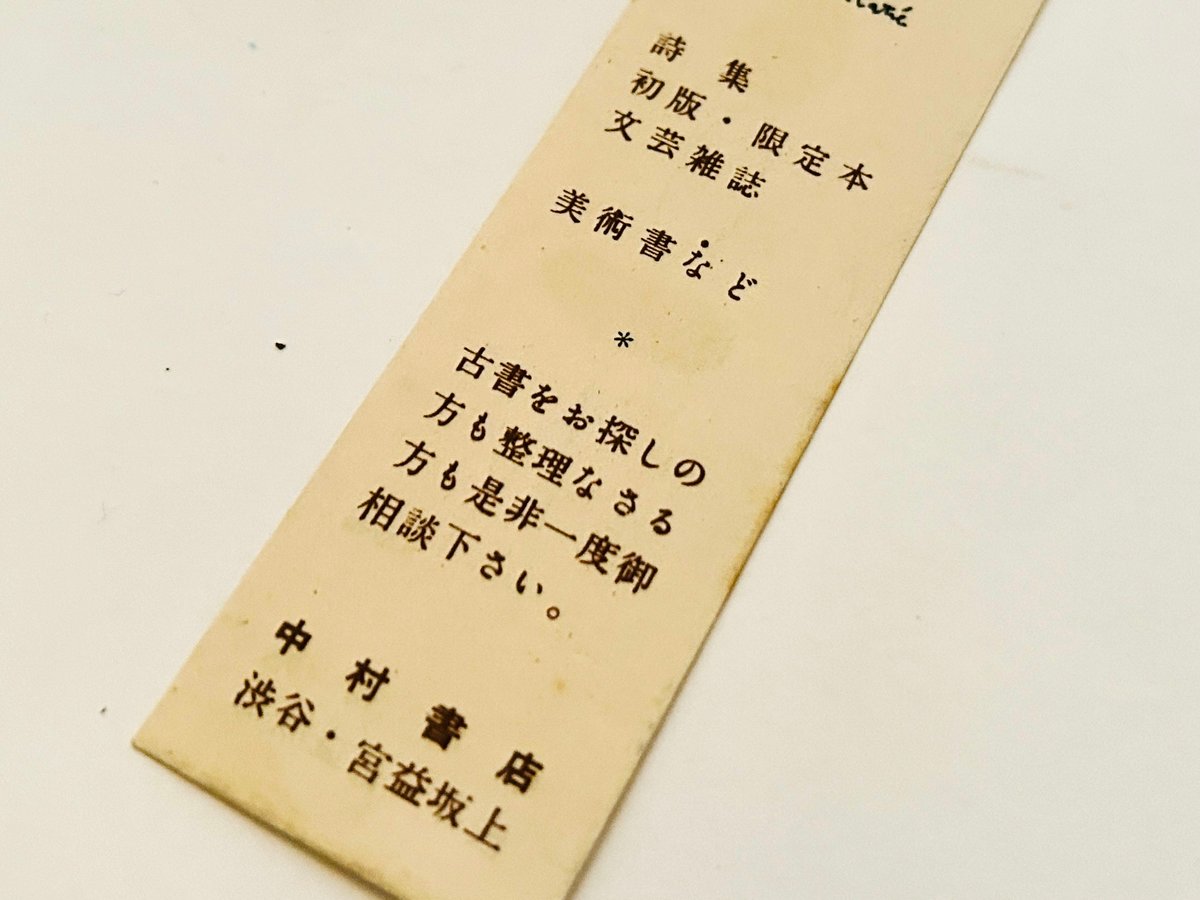 詩集
初版・限定本
文芸雑誌
美術書など
*
古書をお探しの
方も整理なさる
方も是非一度御
相談下さい。
中村書店
渋谷・宮益坂上